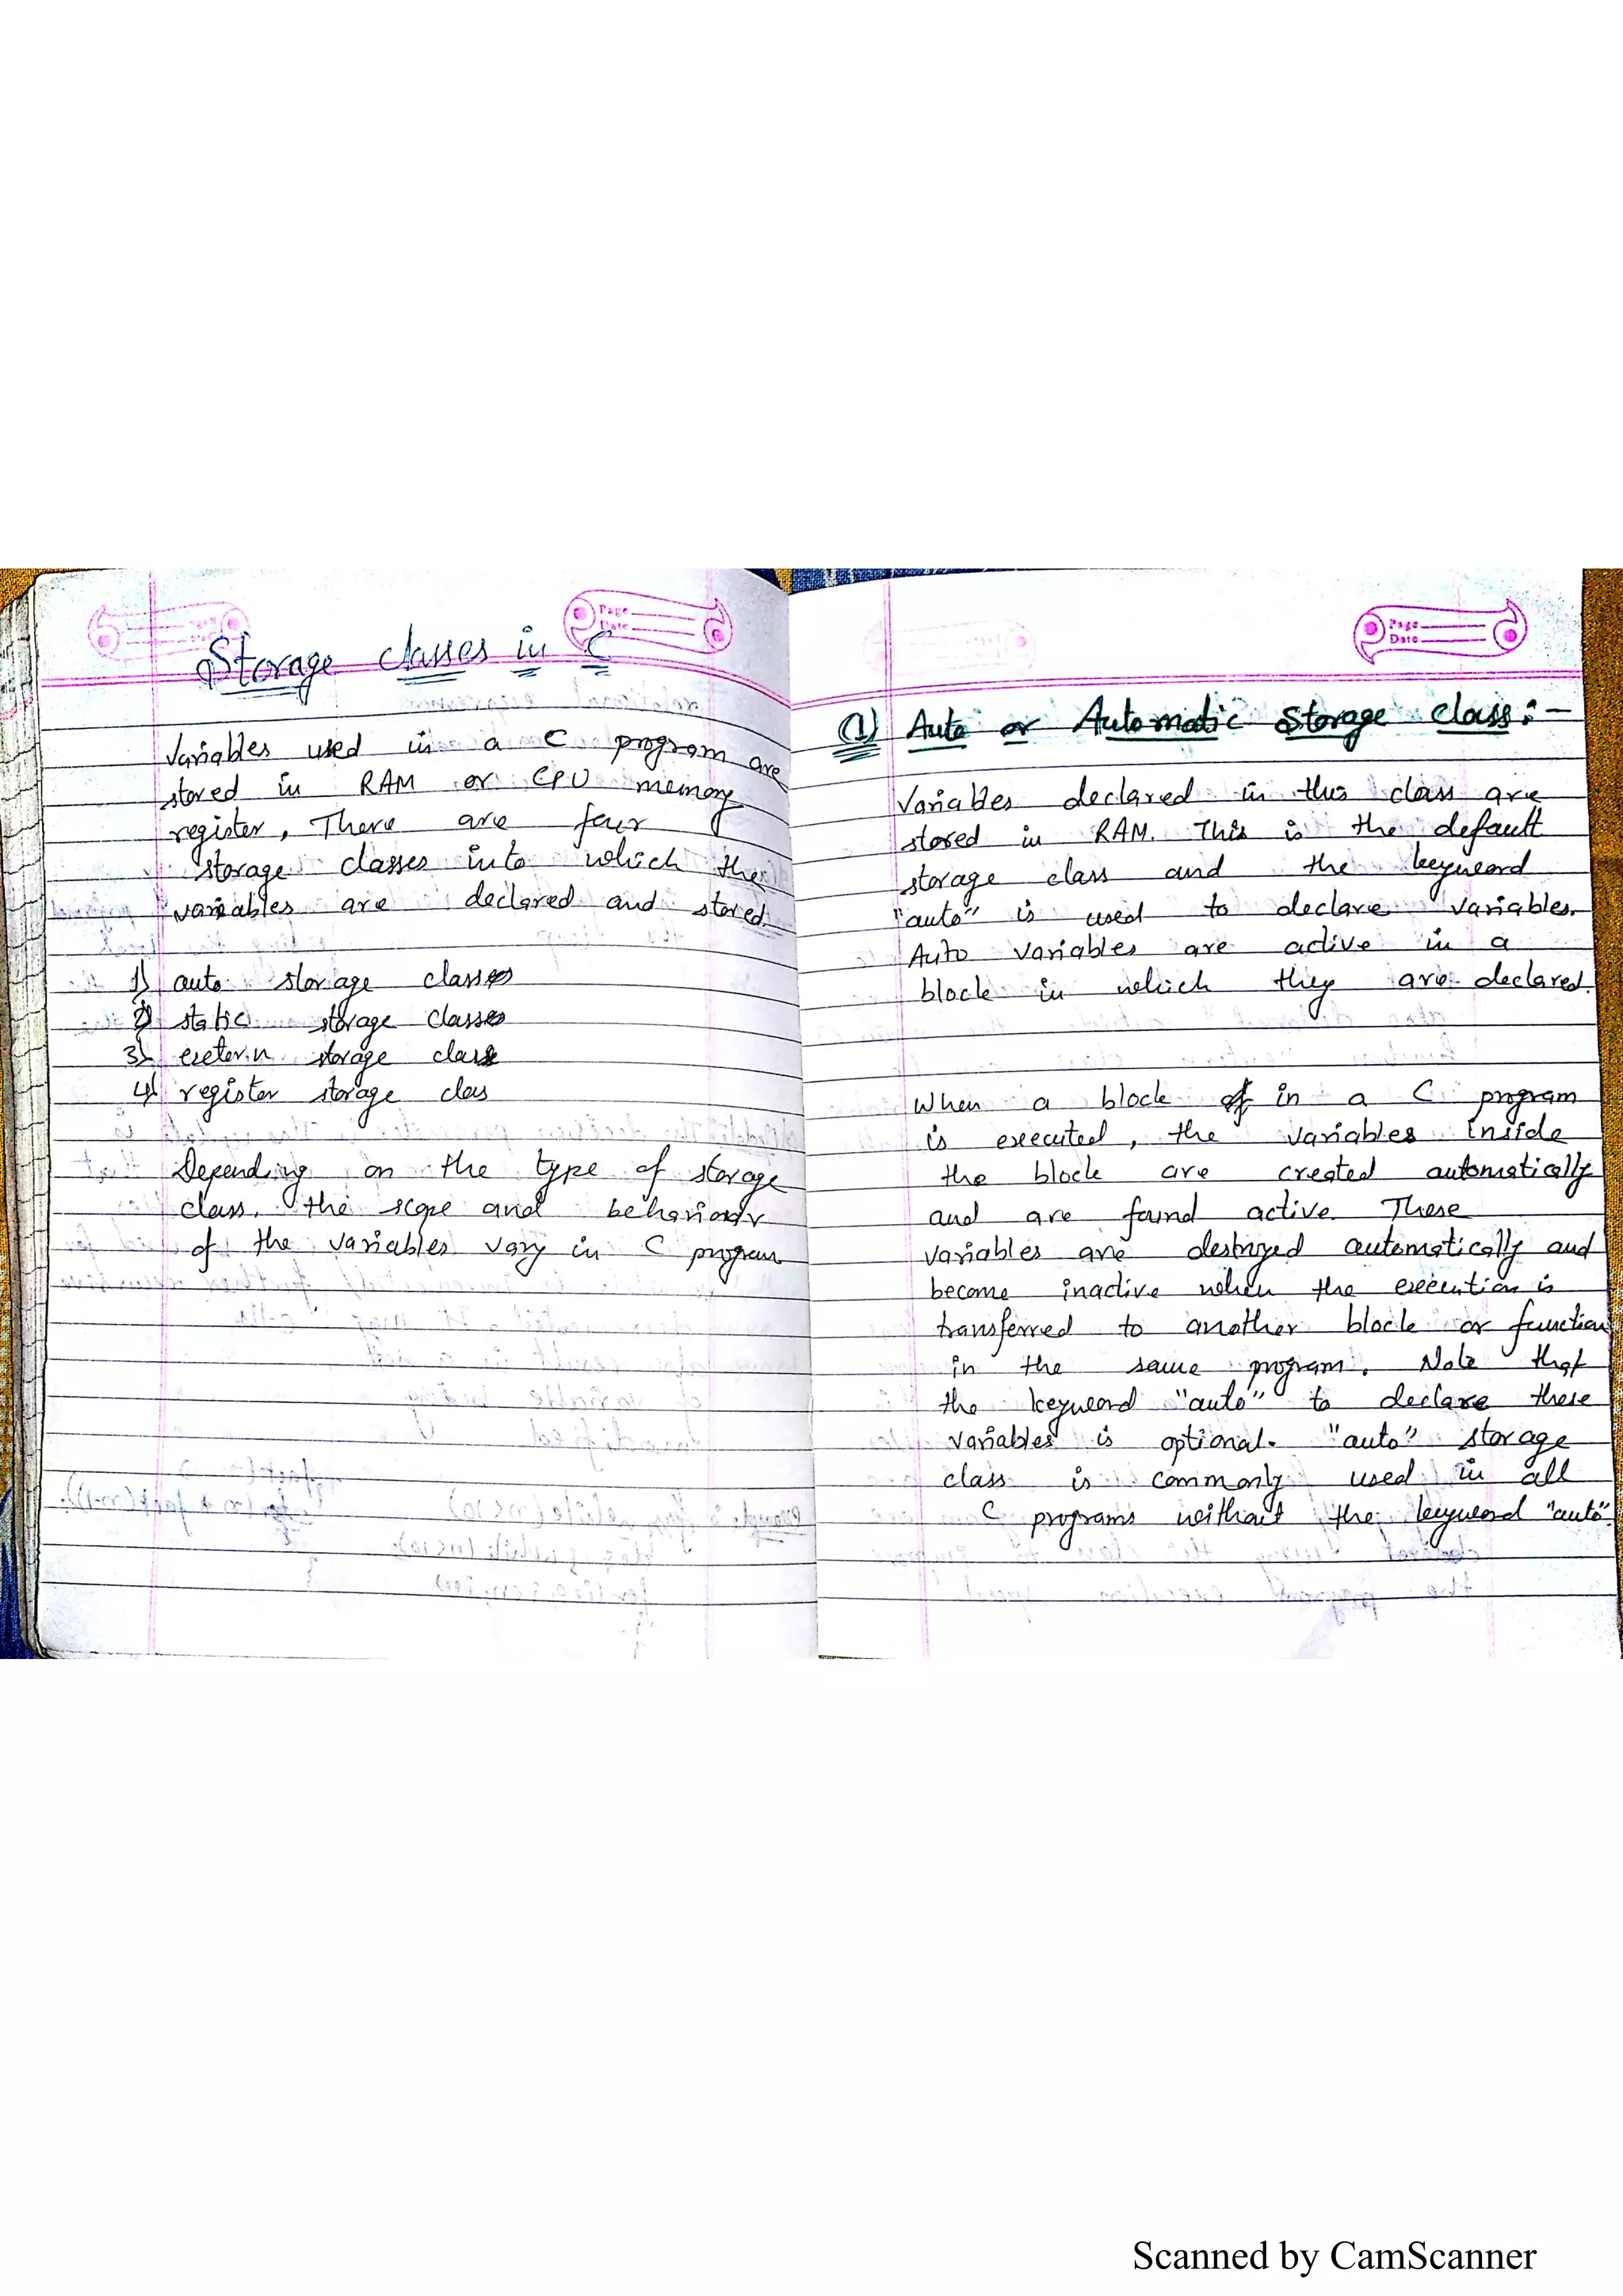 Storage classes in C
Page
Date
Variables used in a C program are
stored in RAM or CPU memory
register, There are four
storage classes into which the
variables are declared and stored.
1) auto storage classes
2) static storage classes
3) extern storage class
4) register storage clas
Depending on the type of storage
class, the scope and behaviour
of the variables vary in C program
Page
Date
(1) Auto or Automatic Storage class:-
Variables declared in this class are
stored in RAM. This is the default
storage class and the keyword
"auto" is used to declare variables.
Auto variables are active in a
block in which they are declared.
When a block in a C program
is executed, the variables inside
the block are created automatically
and are found active. These
variables are destroyed automatically and
become inactive when the execution is
transferred to another block or function
in the same program. Note that
the keyword "auto" to declare these
variables is optional. "auto" storage
class is commonly used in all
C programs without the keyword "auto".
Scanned by CamScanner